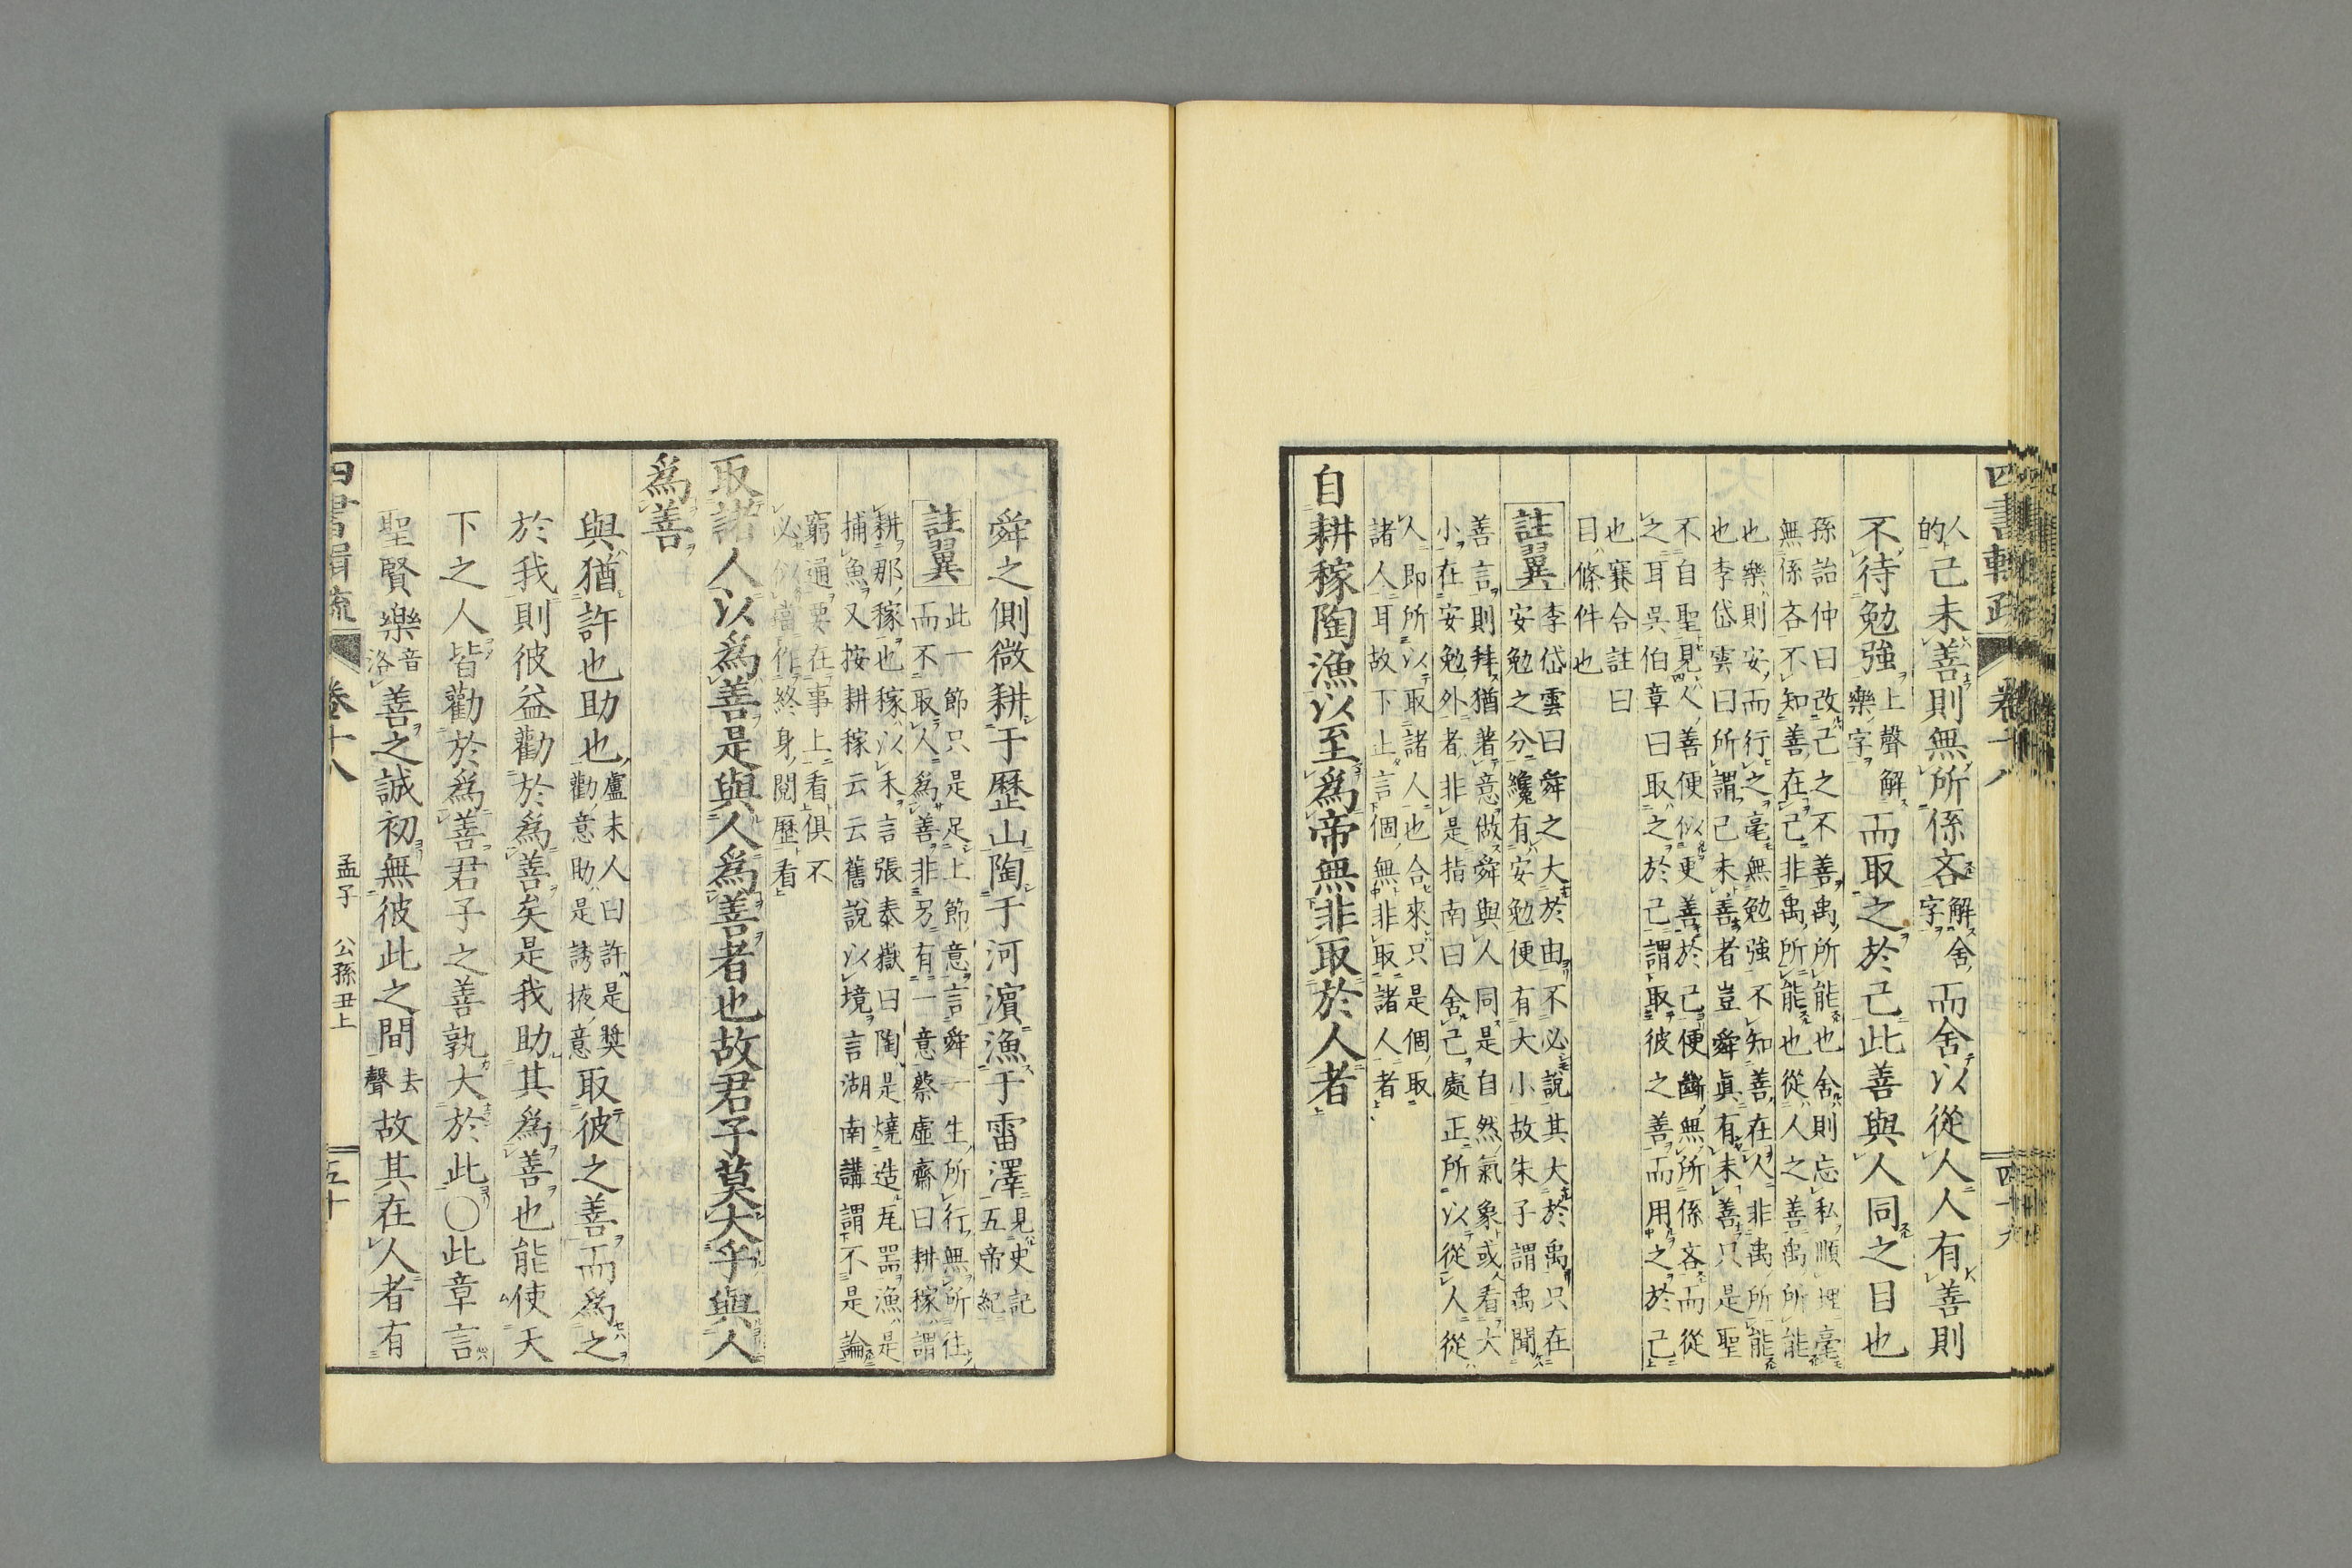 四書輯疏 卷十八 四十九
人的己未善則無所係吝解吝字舍而舍以從人人有善則
不待勉強上聲解樂字而取之於己此善與人同之目也
孫詒仲曰改己之不善禹所能也舍則忘私順理毫
無係吝不知善在己非禹所能也從人之善禹所能
也樂則安而行之毫無勉強不知善在人非禹所能
也李岱雲曰所謂己未善者豈舜眞有未善只是聖
不自聖見人善便似更善於己便斷無所係吝而從
之耳吳伯章曰取之於己謂取彼之善而用之於己
也賽合註曰
目條件也
註翼 李岱雲曰舜之大於由不必說其大於禹只在
安勉之分纔有安勉便有大小故朱子謂禹聞
善言則拜猶著意做舜與人同是自然氣象或看大
小在安勉外者非是指南曰舍己處正所以從人從
人即所以取諸人也合來只是個取
諸人耳故下止言個無非取諸人者
自耕稼陶漁以至爲帝無非取於人者
舜之側微耕于歷山陶于河濱漁于雷澤見史記五帝紀
註翼 此一節只是足上節意言舜一生所行無所往
而不取人爲善非另有一意蔡虛齋曰耕稼謂
耕那稼也稼以禾言張泰嶽曰陶是燒造瓦器漁是
捕魚又按耕稼云云舊說以境言湖南講謂不是論
窮通要在事上看俱不
必似當作終身閱歷看
取諸人以爲善是與人爲善者也故君子莫大乎與人
爲善
與猶許也助也盧未人曰許是奬勸意助是誘掖意取彼之善而爲之
於我則彼益勸於爲善矣是我助其爲善也能使天
下之人皆勸於爲善君子之善孰大於此〇此章言
聖賢樂音洛善之誠初無彼此之間去聲故其在人者有
四書輯疏 卷十八 孟子 公孫丑上 五十